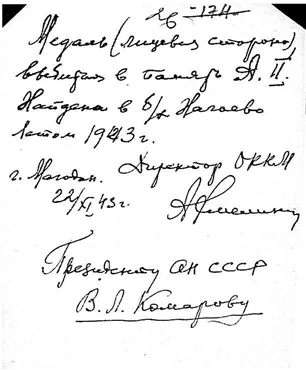 26 174
Медаль (лицевая сторона),
выбитая в память А. II.
Найдена в б/х Нагаево
летом 1943 г.
г. Магадан. Директор ОККМ
22/XI 43 г.
Президенту АН СССР
В. Л. Комарову